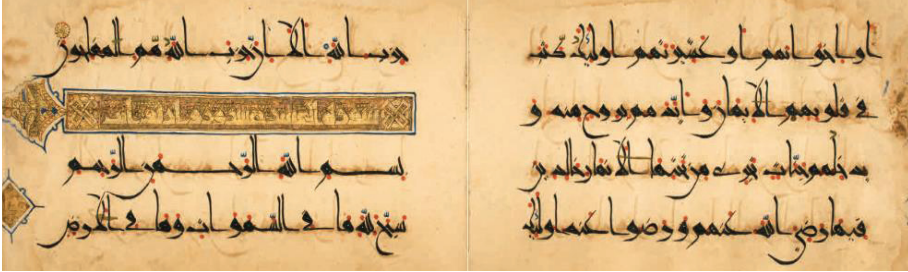 او اخونهم او عشيرتهم اولئك كتب
في قلوبهم الايمن وايدهم بروح منه و
يدخلهم جنات تجري من تحتها الانهار خالدين
فيها رضي الله عنهم ورضوا عنه اولئك
حزب الله الا ان حزب الله هم المفلحون
بسم الله الرحمن الرحيم
سبح لله ما في السموات وما في الارض